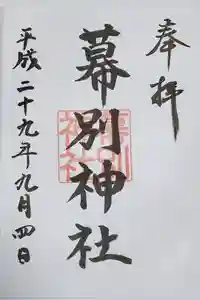 奉拝
幕別神社
平成二十九年九月四日
幕別
神社